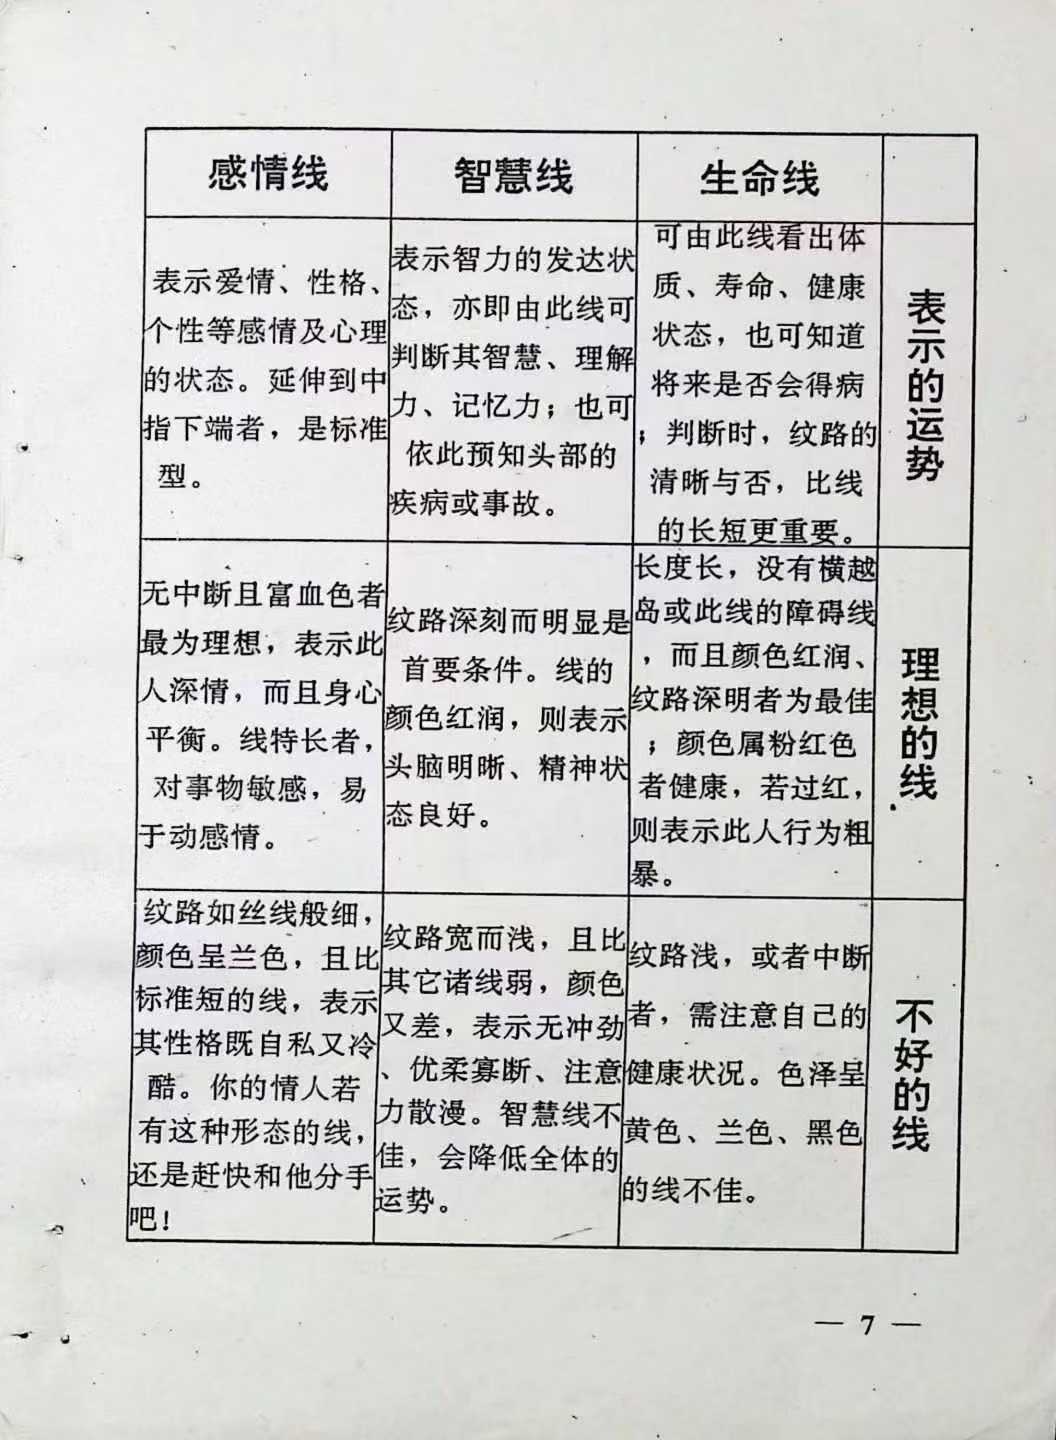 感情线
智慧线
生命线
表示爱情、性格、
个性等感情及心理
的状态。延伸到中
指下端者，是标准
型。
表示智力的发达状
态，亦即由此线可
判断其智慧、理解
力、记忆力；也可
依此预知头部的
疾病或事故。
可由此线看出体
质、寿命、健康
状态，也可知道
将来是否会得病
；判断时，纹路的
清晰与否，比线
的长短更重要。
表示的运势
无中断且富血色者
最为理想，表示此
人深情，而且身心
平衡。线特长者，
对事物敏感，易
于动感情。
纹路深刻而明显是
首要条件。线的
颜色红润，则表示
头脑明晰、精神状
态良好。
长度长，没有横越
岛或此线的障碍线
，而且颜色红润、
纹路深明者为最佳
；颜色属粉红色
者健康，若过红，
则表示此人行为粗
暴。
理想的线
纹路如丝线般细，
颜色呈兰色，且比
标准短的线，表示
其性格既自私又冷
酷。你的情人若
有这种形态的线，
还是赶快和他分手
吧！
纹路宽而浅，且比
其它诸线弱，颜色
又差，表示无冲劲
、优柔寡断、注意
力散漫。智慧线不
佳，会降低全体的
运势。
纹路浅，或者中断
者，需注意自己的
健康状况。色泽呈
黄色、兰色、黑色
的线不佳。
不好的线
— 7 —